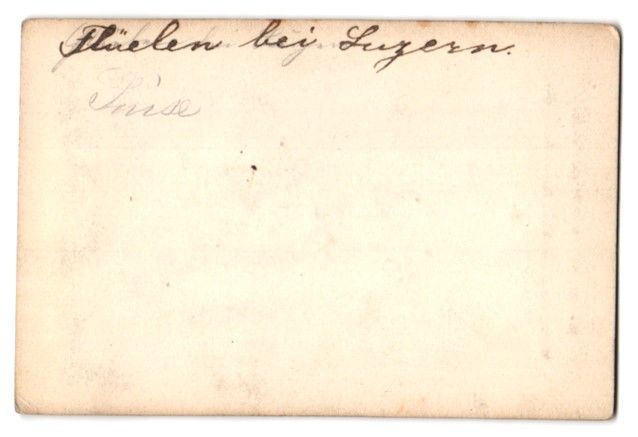 Flüelen bei Luzern.
Suise